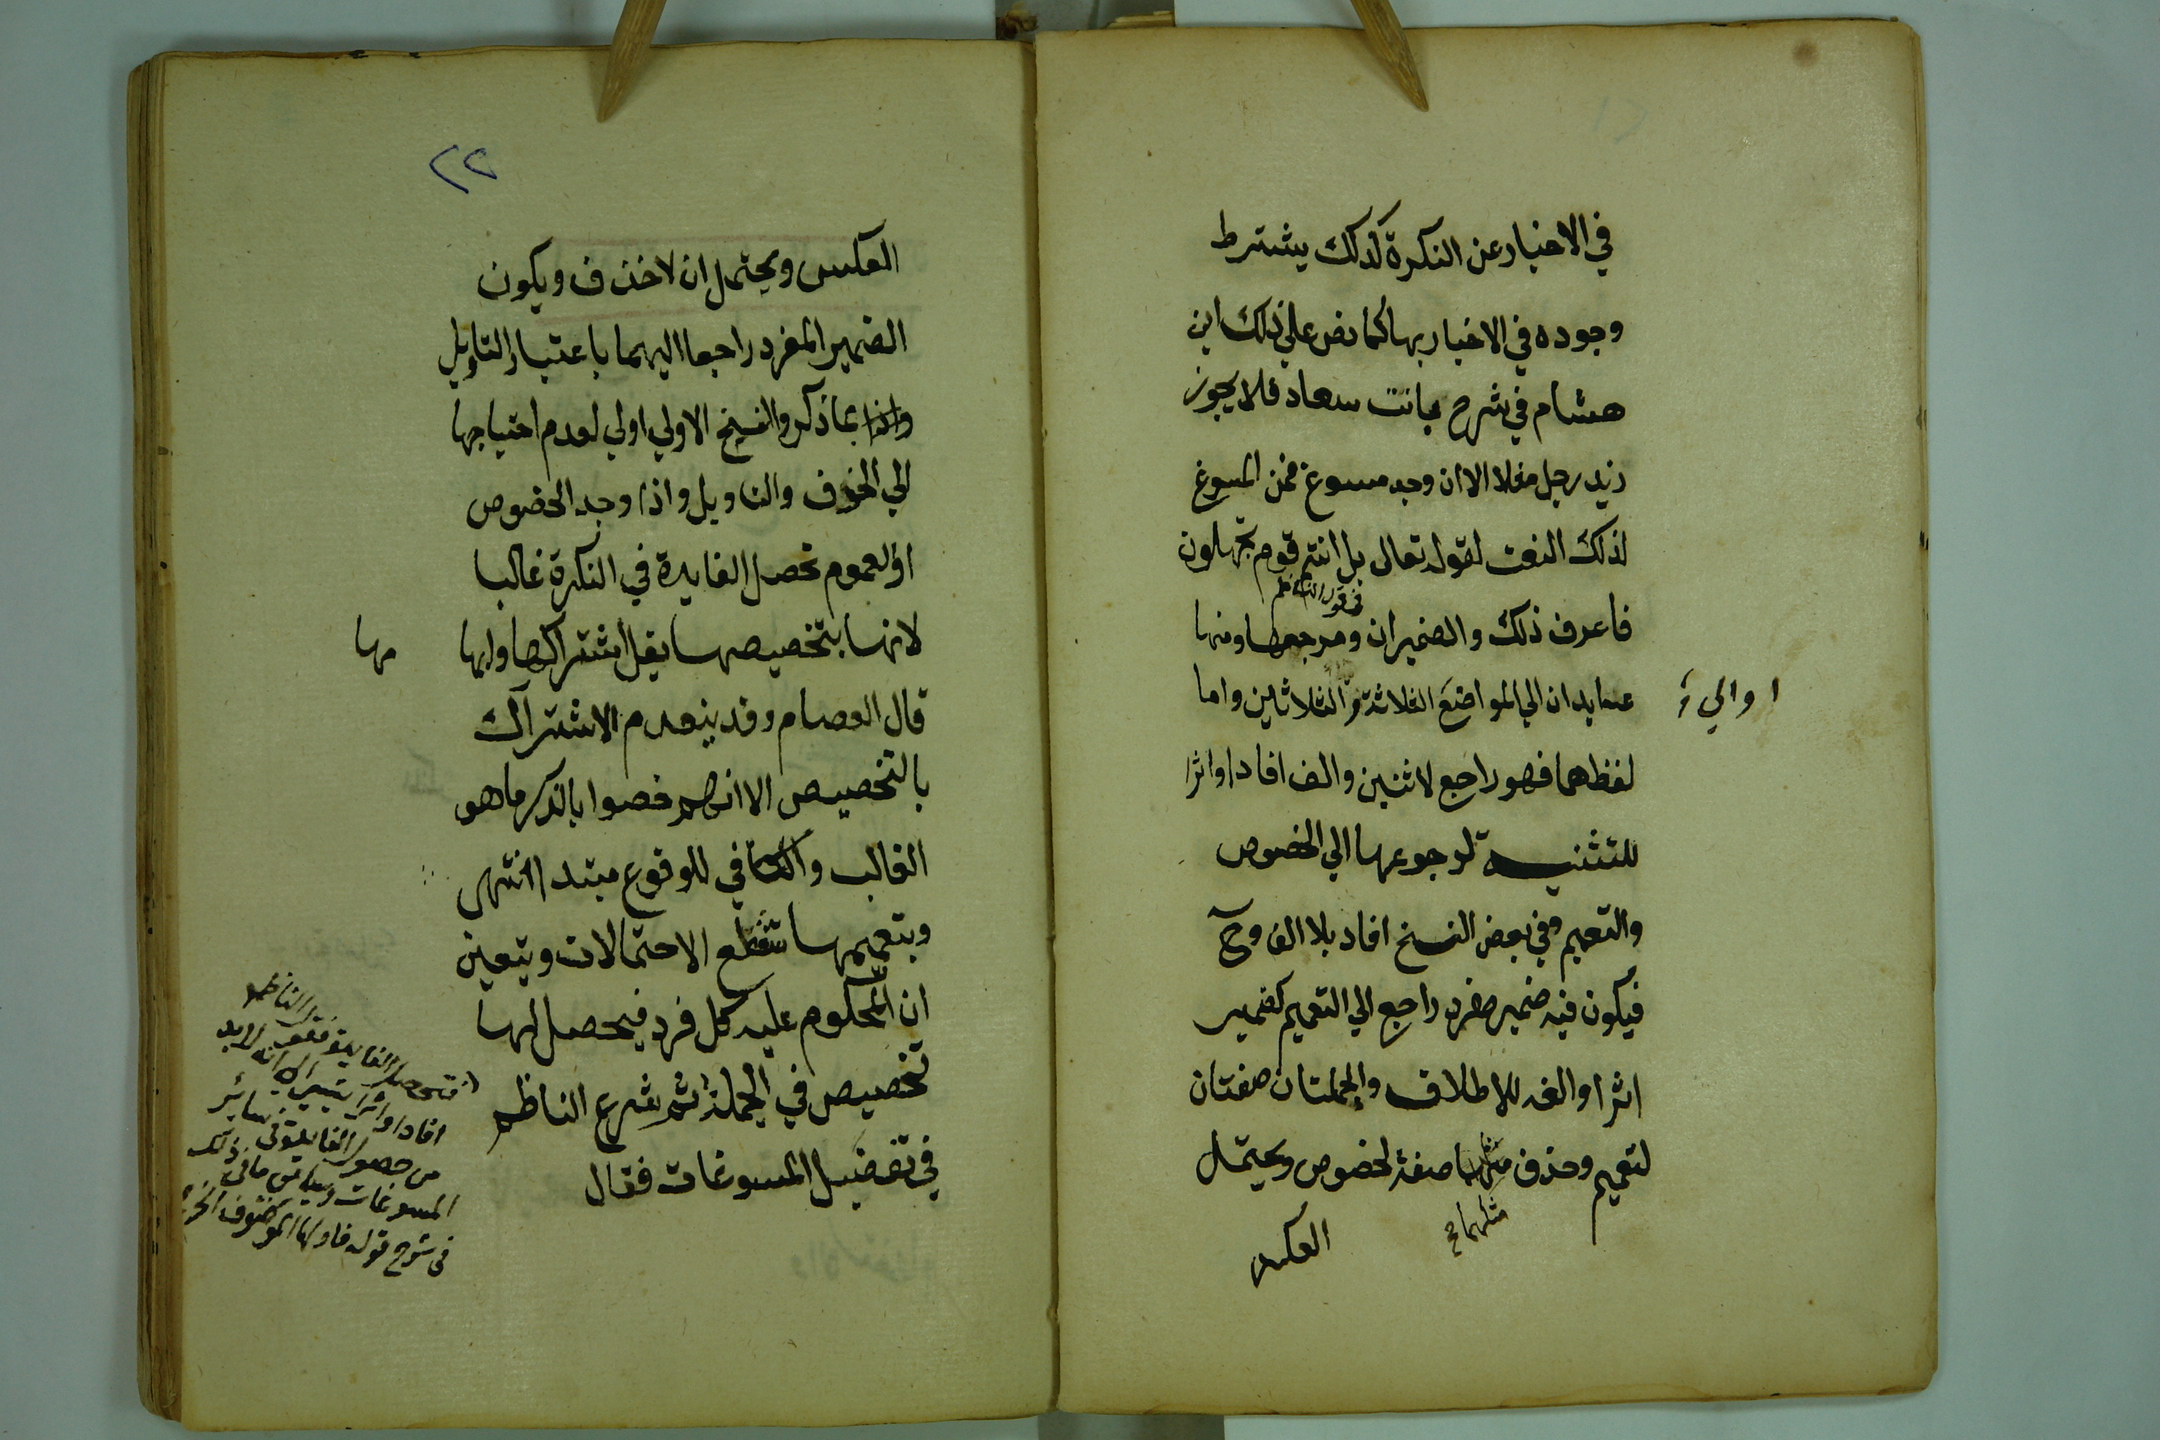 في الاخبار عن النكرة كذلك يشترط
وجوده في الاخبار بها كما نص علي ذلك ابن
هشام في شرح بانت سعاد فلا يجوز
زيد رجل مثلا الا ان وجد مسوغ فمن المسوغ
لذلك النعت لقوله تعالى بل انتم قوم تجهلون
في قول الناظم
فاعرف ذلك والضميران ومرجعها ومنها
عـايدان الي المواضع الثلاثة والثلاثين واما
او الي
لفظهما فهو راجع لاثنين والف افادا واثرا
للتثنيـة لرجوعها الي الخصوص
والتعميم وفي بعض النسخ افاد بلا الف وح
فيكون فيه ضمير مفرد راجع الي التعميم كضمير
اثرا والفه للاطلاق والجملتان صفتان
لتعميم وحذف مثلها صفة لخصوص ويحتمل
مثلهما
العكس
٢٢
العكس ويحتمل ان لا حذف ويكون
الضمير المفرد راجعا اليهما باعتبار التاويل
بما ذكر والنسخ الاولي اولي لعدم احتياجها
الي الحذف والتاويل واذا وجد الخصوص
او العموم تحصل الفايدة في النكرة غالبا
لانها بتخصيصها يقل اشتراكها وابها
مها
قال العصام وقد ينعدم الاشتراك
بالتخصيص الا انهم خصوا بالذكر ما هو
الغالب والكافي للوقوع مبتدا انتهى
وبتعميمها تنقطع الاحتمالات ويتعين
ان المحكوم عليه كل فرد فيحصل لها
تخصيص في الجملة ثم شرع الناظم
في تفضيل المسوغات فقال
فتحصل الفايدة فقول الناظم
افادا واثرا يشير الي انه لابد
من حصول الفايدة في سائر
المسوغات وسياتي ما في ذلك
في شرح قوله فاولها الموصوف الخ